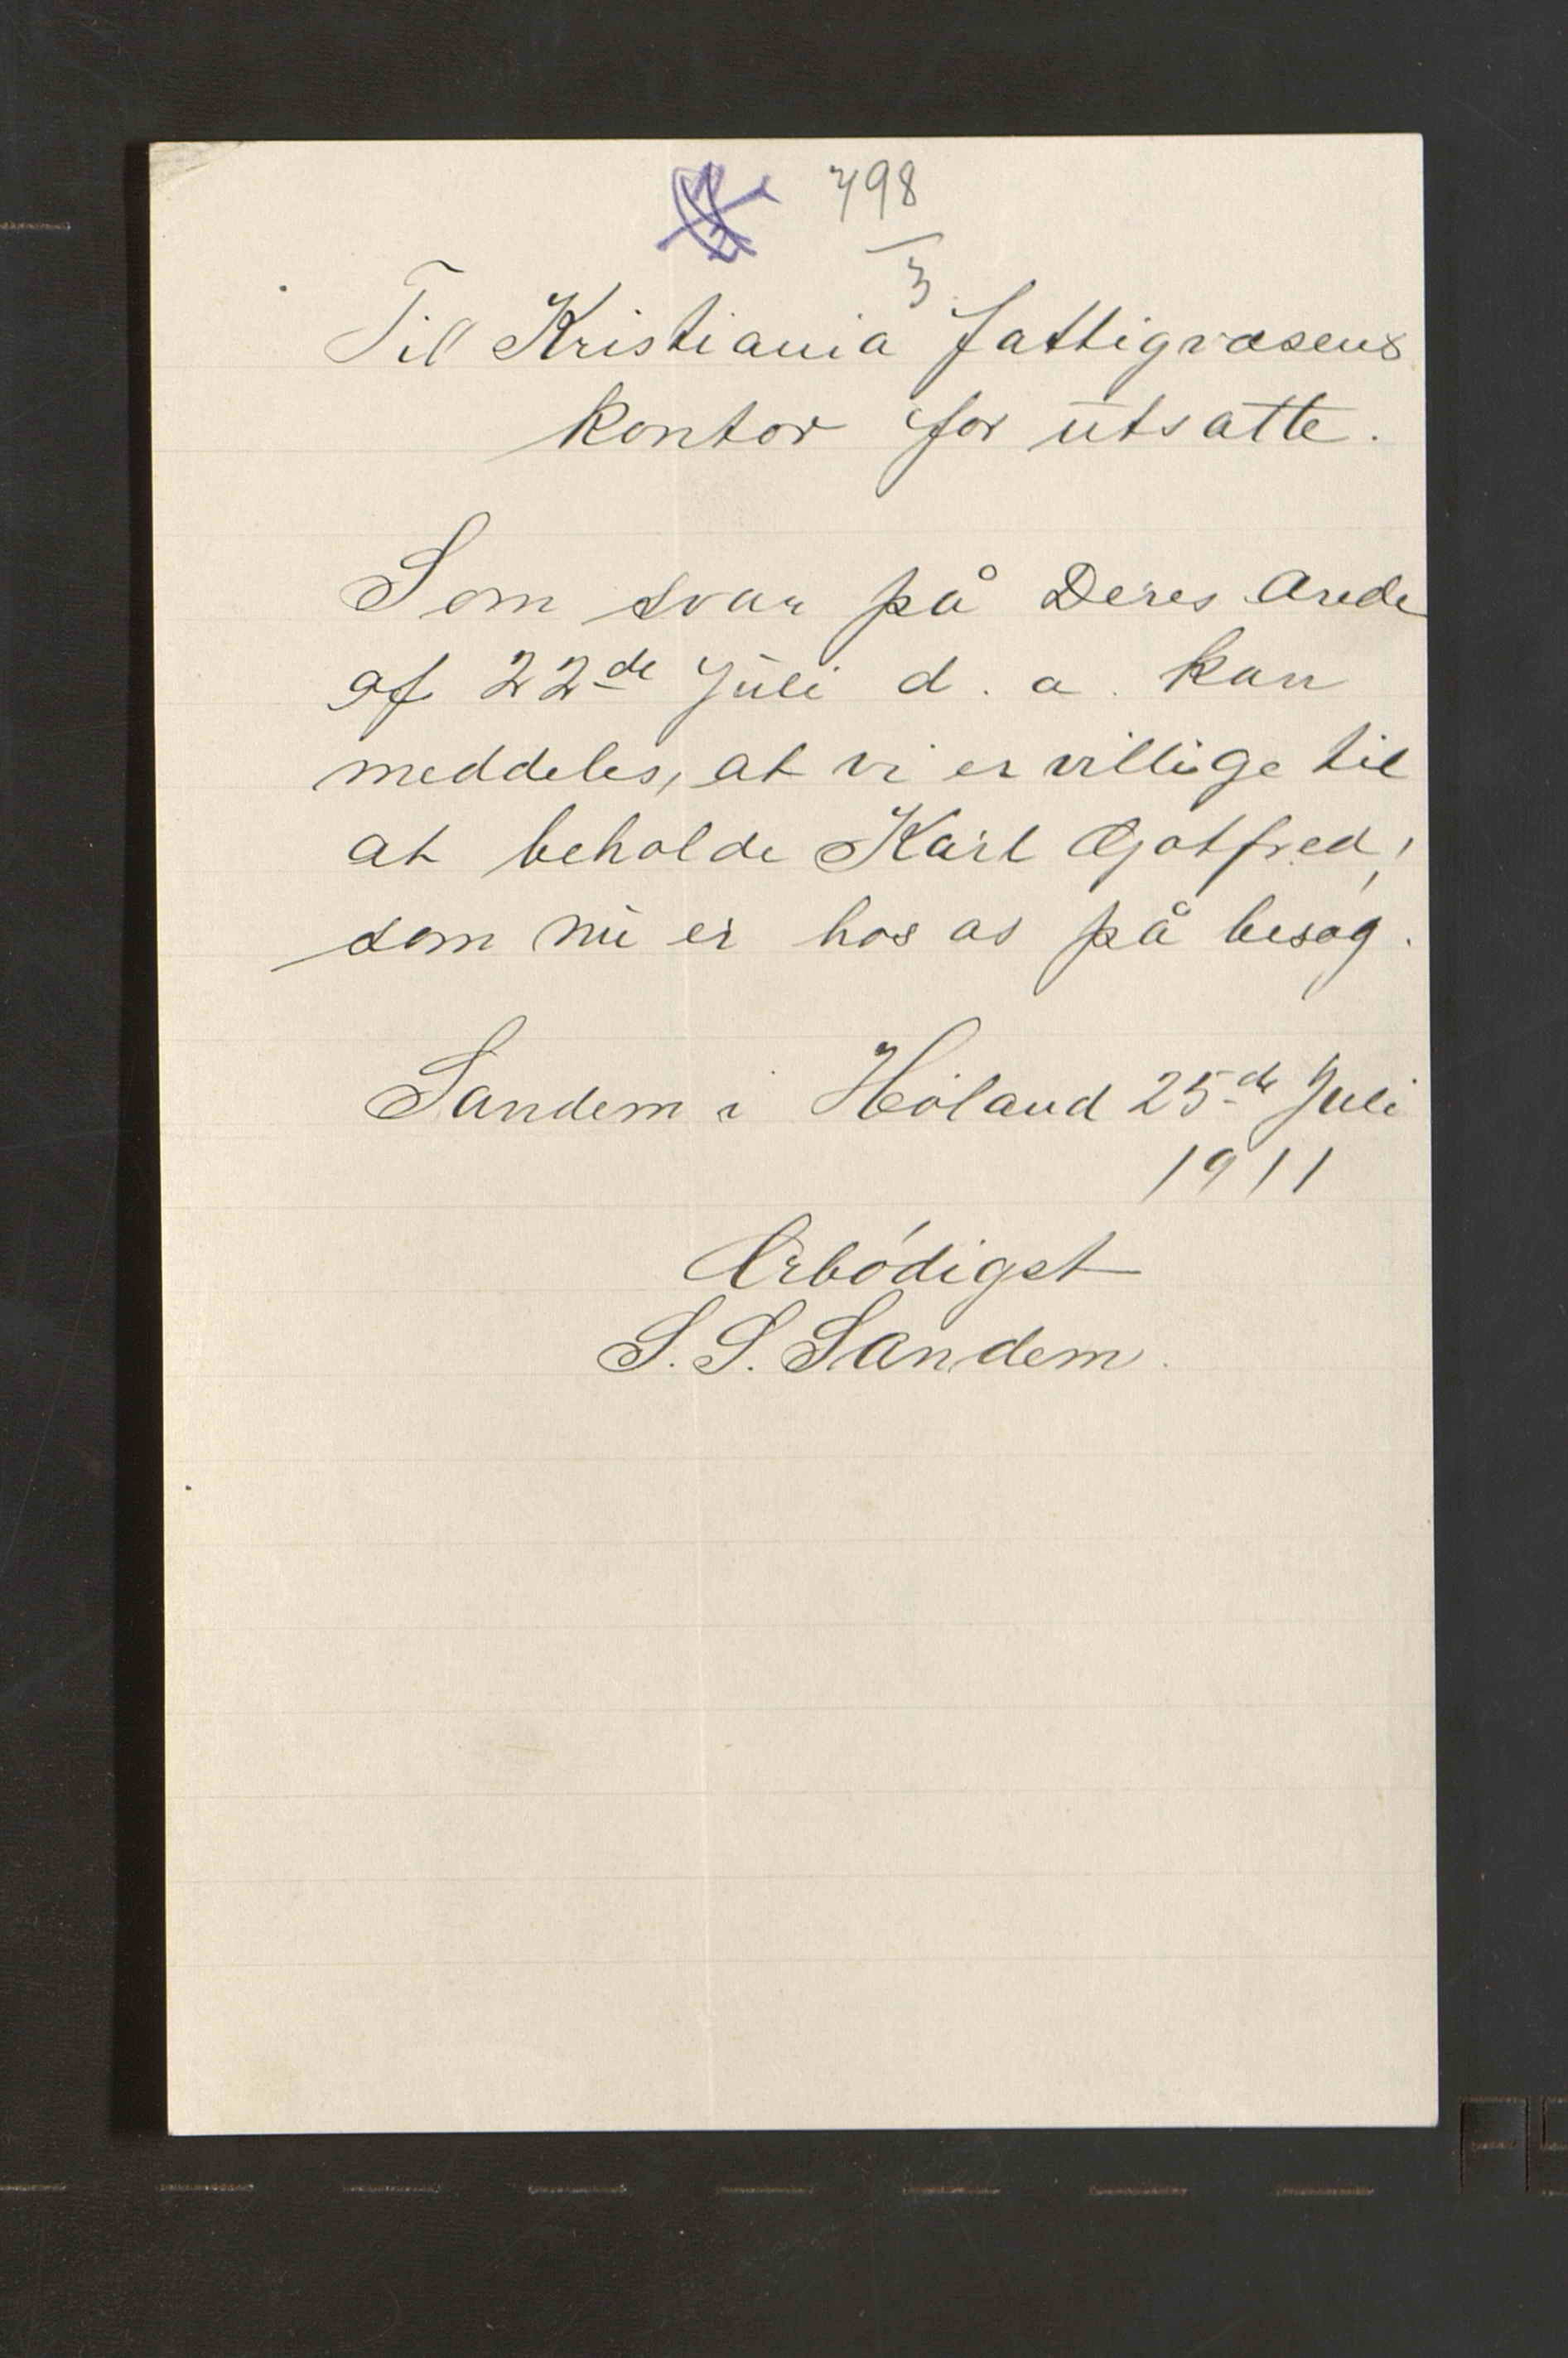 498
3
Til Kristiania fattigvæsens
kontor for utsatte.
Som svar på Deres ærede
af 22de Juli d. a. kan
meddeles, at vi er villige til
at beholde Karl Gotfred,
som nu er hos os på besøg.
Sandem i Høland 25de Juli
1911
Ærbødigst
S. S. Sandem.